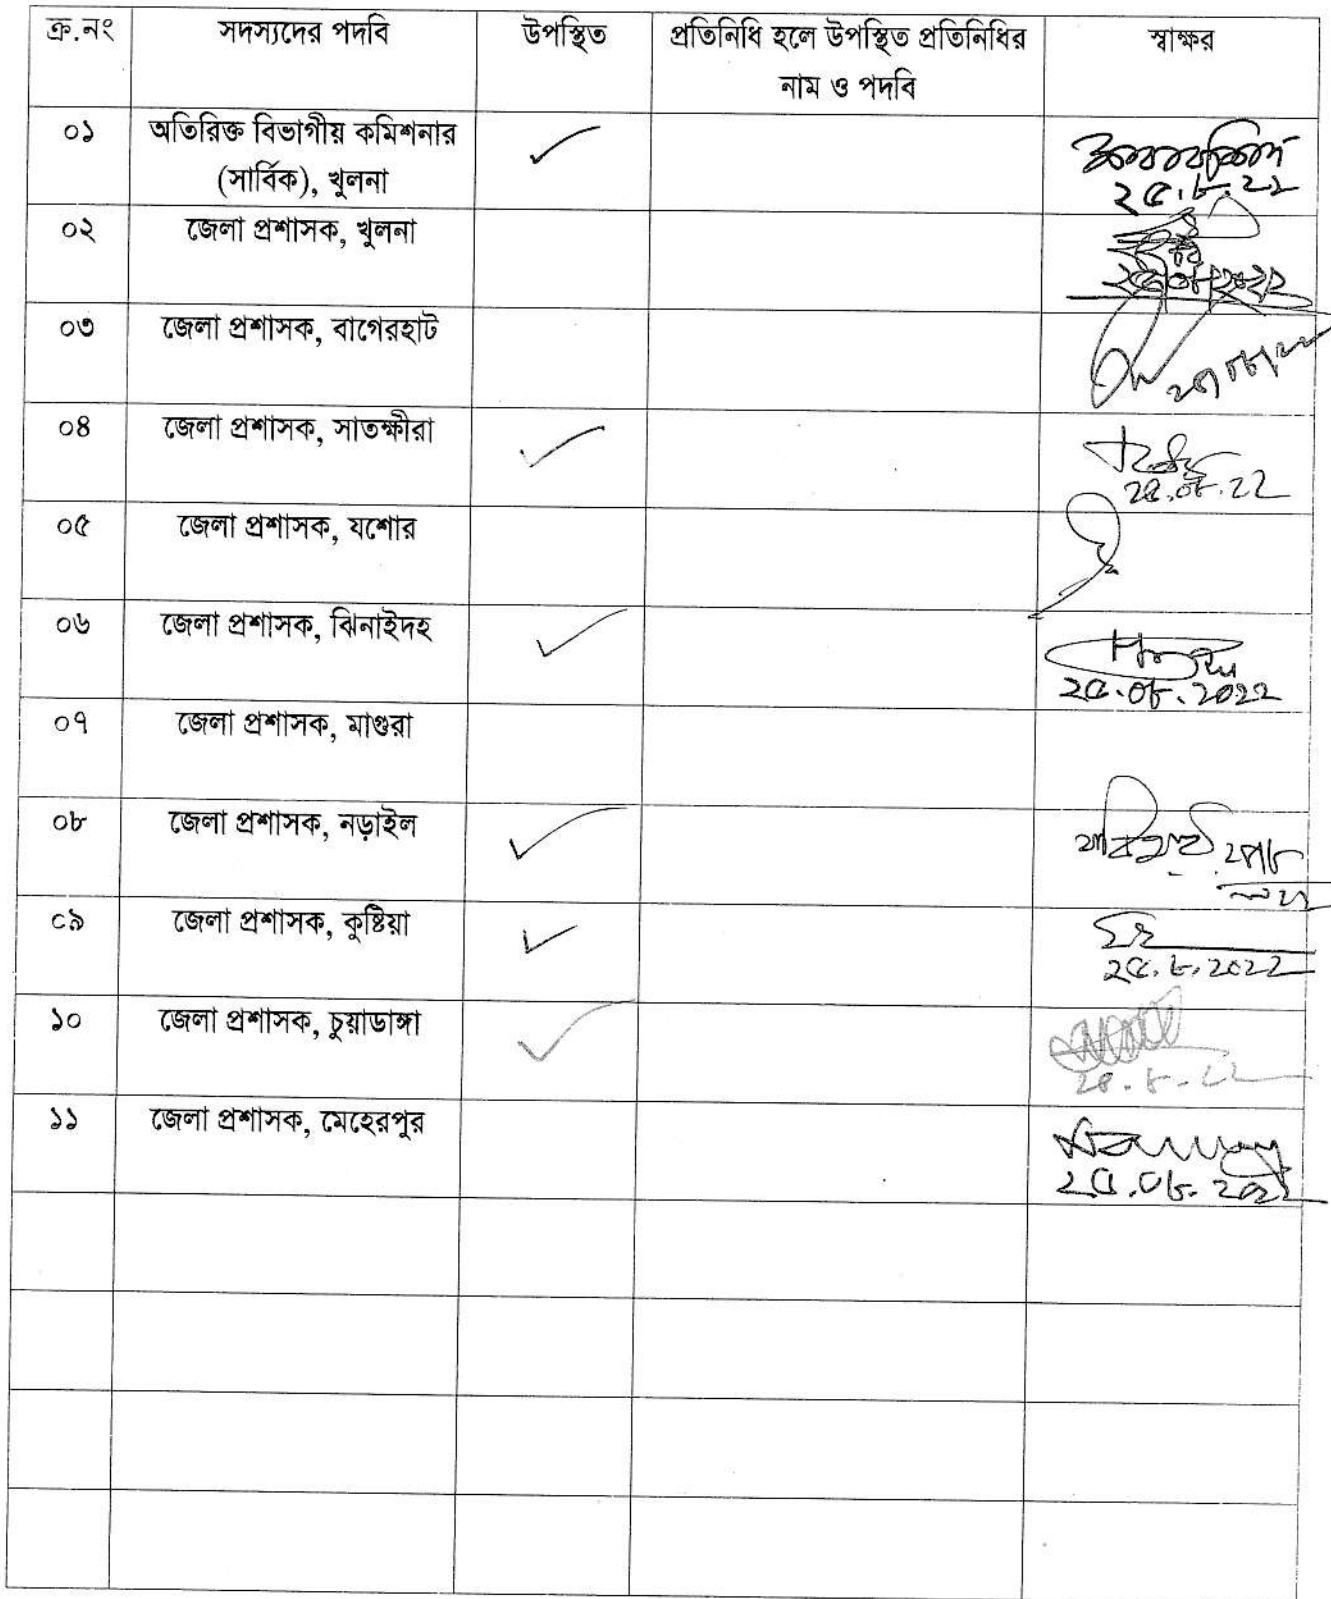 ক্র.নং সদস্যদের পদবি উপস্থিত প্রতিনিধি হলে উপস্থিত প্রতিনিধির স্বাক্ষর
নাম ও পদবি
০১ অতিরিক্ত বিভাগীয় কমিশনার
(সার্বিক), খুলনা
২৫.৮.২২
০২ জেলা প্রশাসক, খুলনা
০৩ জেলা প্রশাসক, বাগেরহাট
০৪ জেলা প্রশাসক, সাতক্ষীরা
২৫.০৮.২২
০৫ জেলা প্রশাসক, যশোর
০৬ জেলা প্রশাসক, ঝিনাইদহ
২৫.০৮.২০২২
০৭ জেলা প্রশাসক, মাগুরা
০৮ জেলা প্রশাসক, নড়াইল
০৯ জেলা প্রশাসক, কুষ্টিয়া
২৫.৮.২০২২
১০ জেলা প্রশাসক, চুয়াডাঙ্গা
২৫.৮.২২
১১ জেলা প্রশাসক, মেহেরপুর
২৫.০৮.২০২২